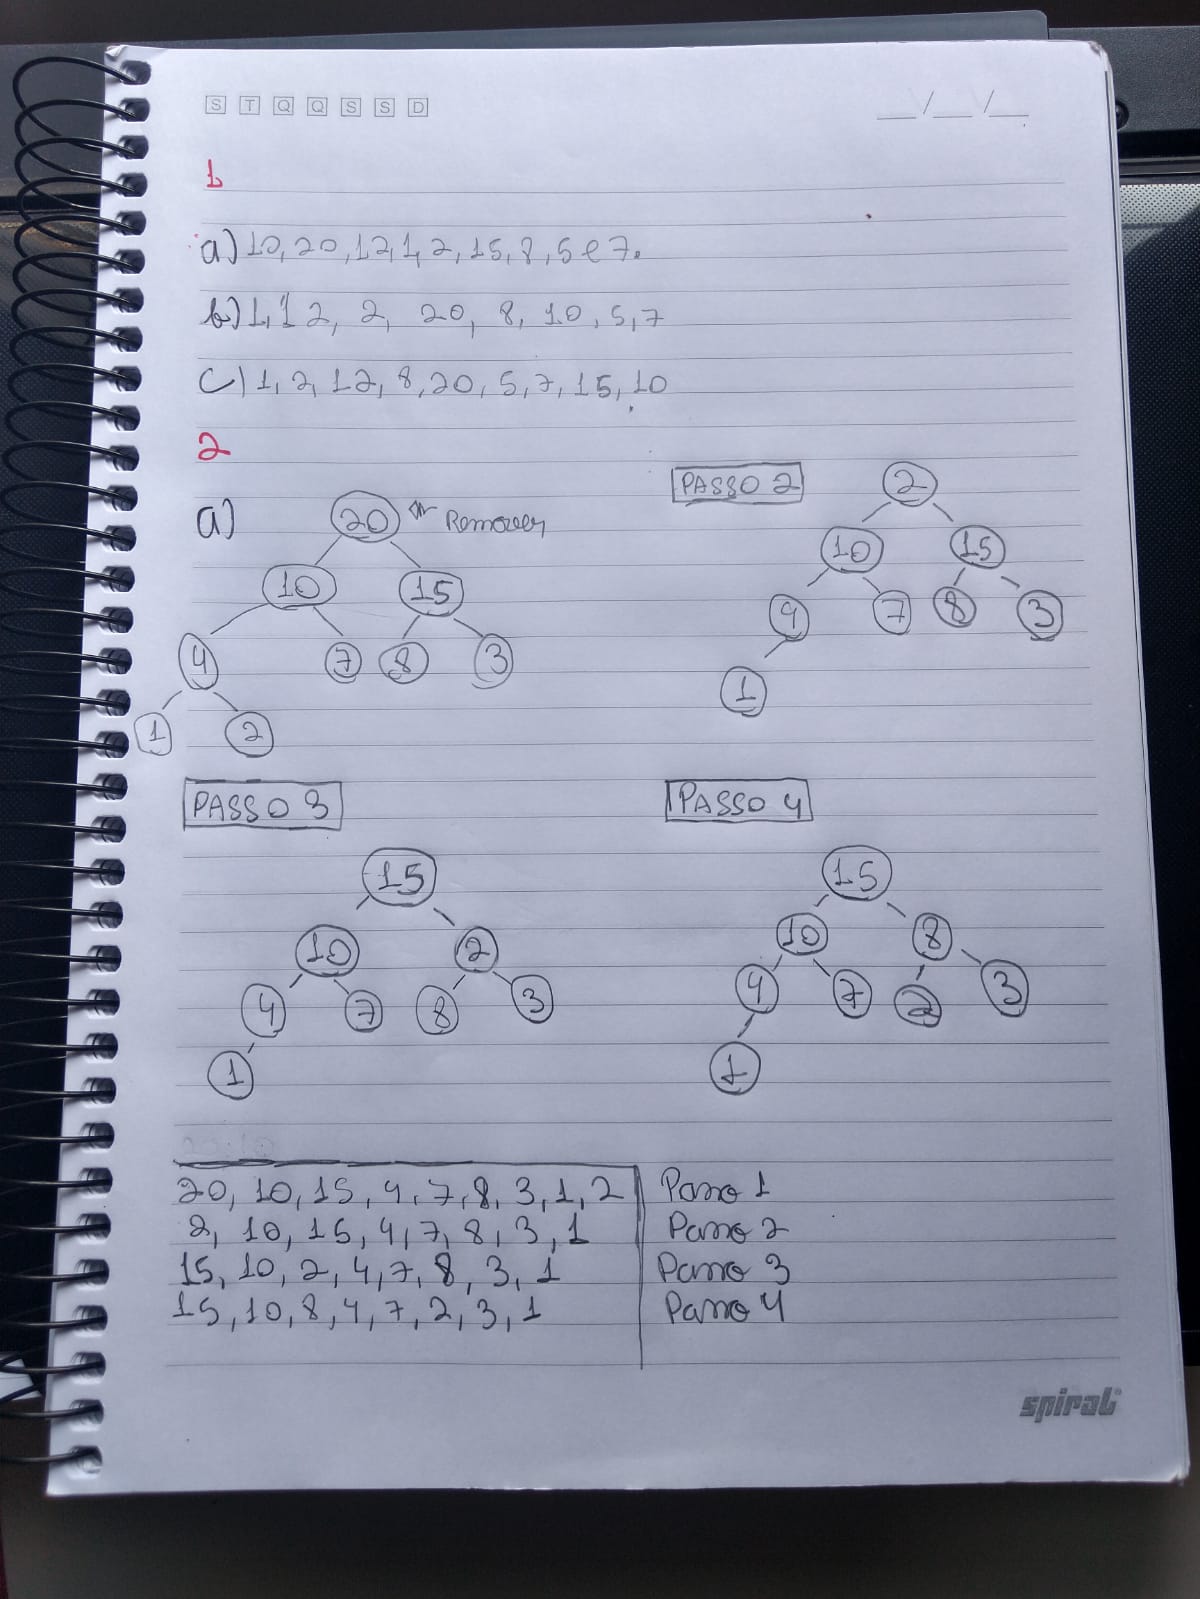 S T Q Q S S D
__/__/__
1
a) 10, 20, 12, 1, 2, 15, 8, 5 e 7.
b) 1, 12, 2, 20, 8, 10, 5, 7
c) 1, 2, 12, 8, 20, 5, 7, 15, 10
2
a)
20 Remover
10 15
4 7 8 3
1 2
PASSO 2
2
10 15
4 7 8 3
1
PASSO 3
15
10 2
4 7 8 3
1
PASSO 4
15
10 8
4 7 2 3
1
20, 10, 15, 4, 7, 8, 3, 1, 2 Passo 1
2, 10, 15, 4, 7, 8, 3, 1 Passo 2
15, 10, 2, 4, 7, 8, 3, 1 Passo 3
15, 10, 8, 4, 7, 2, 3, 1 Passo 4
spiral